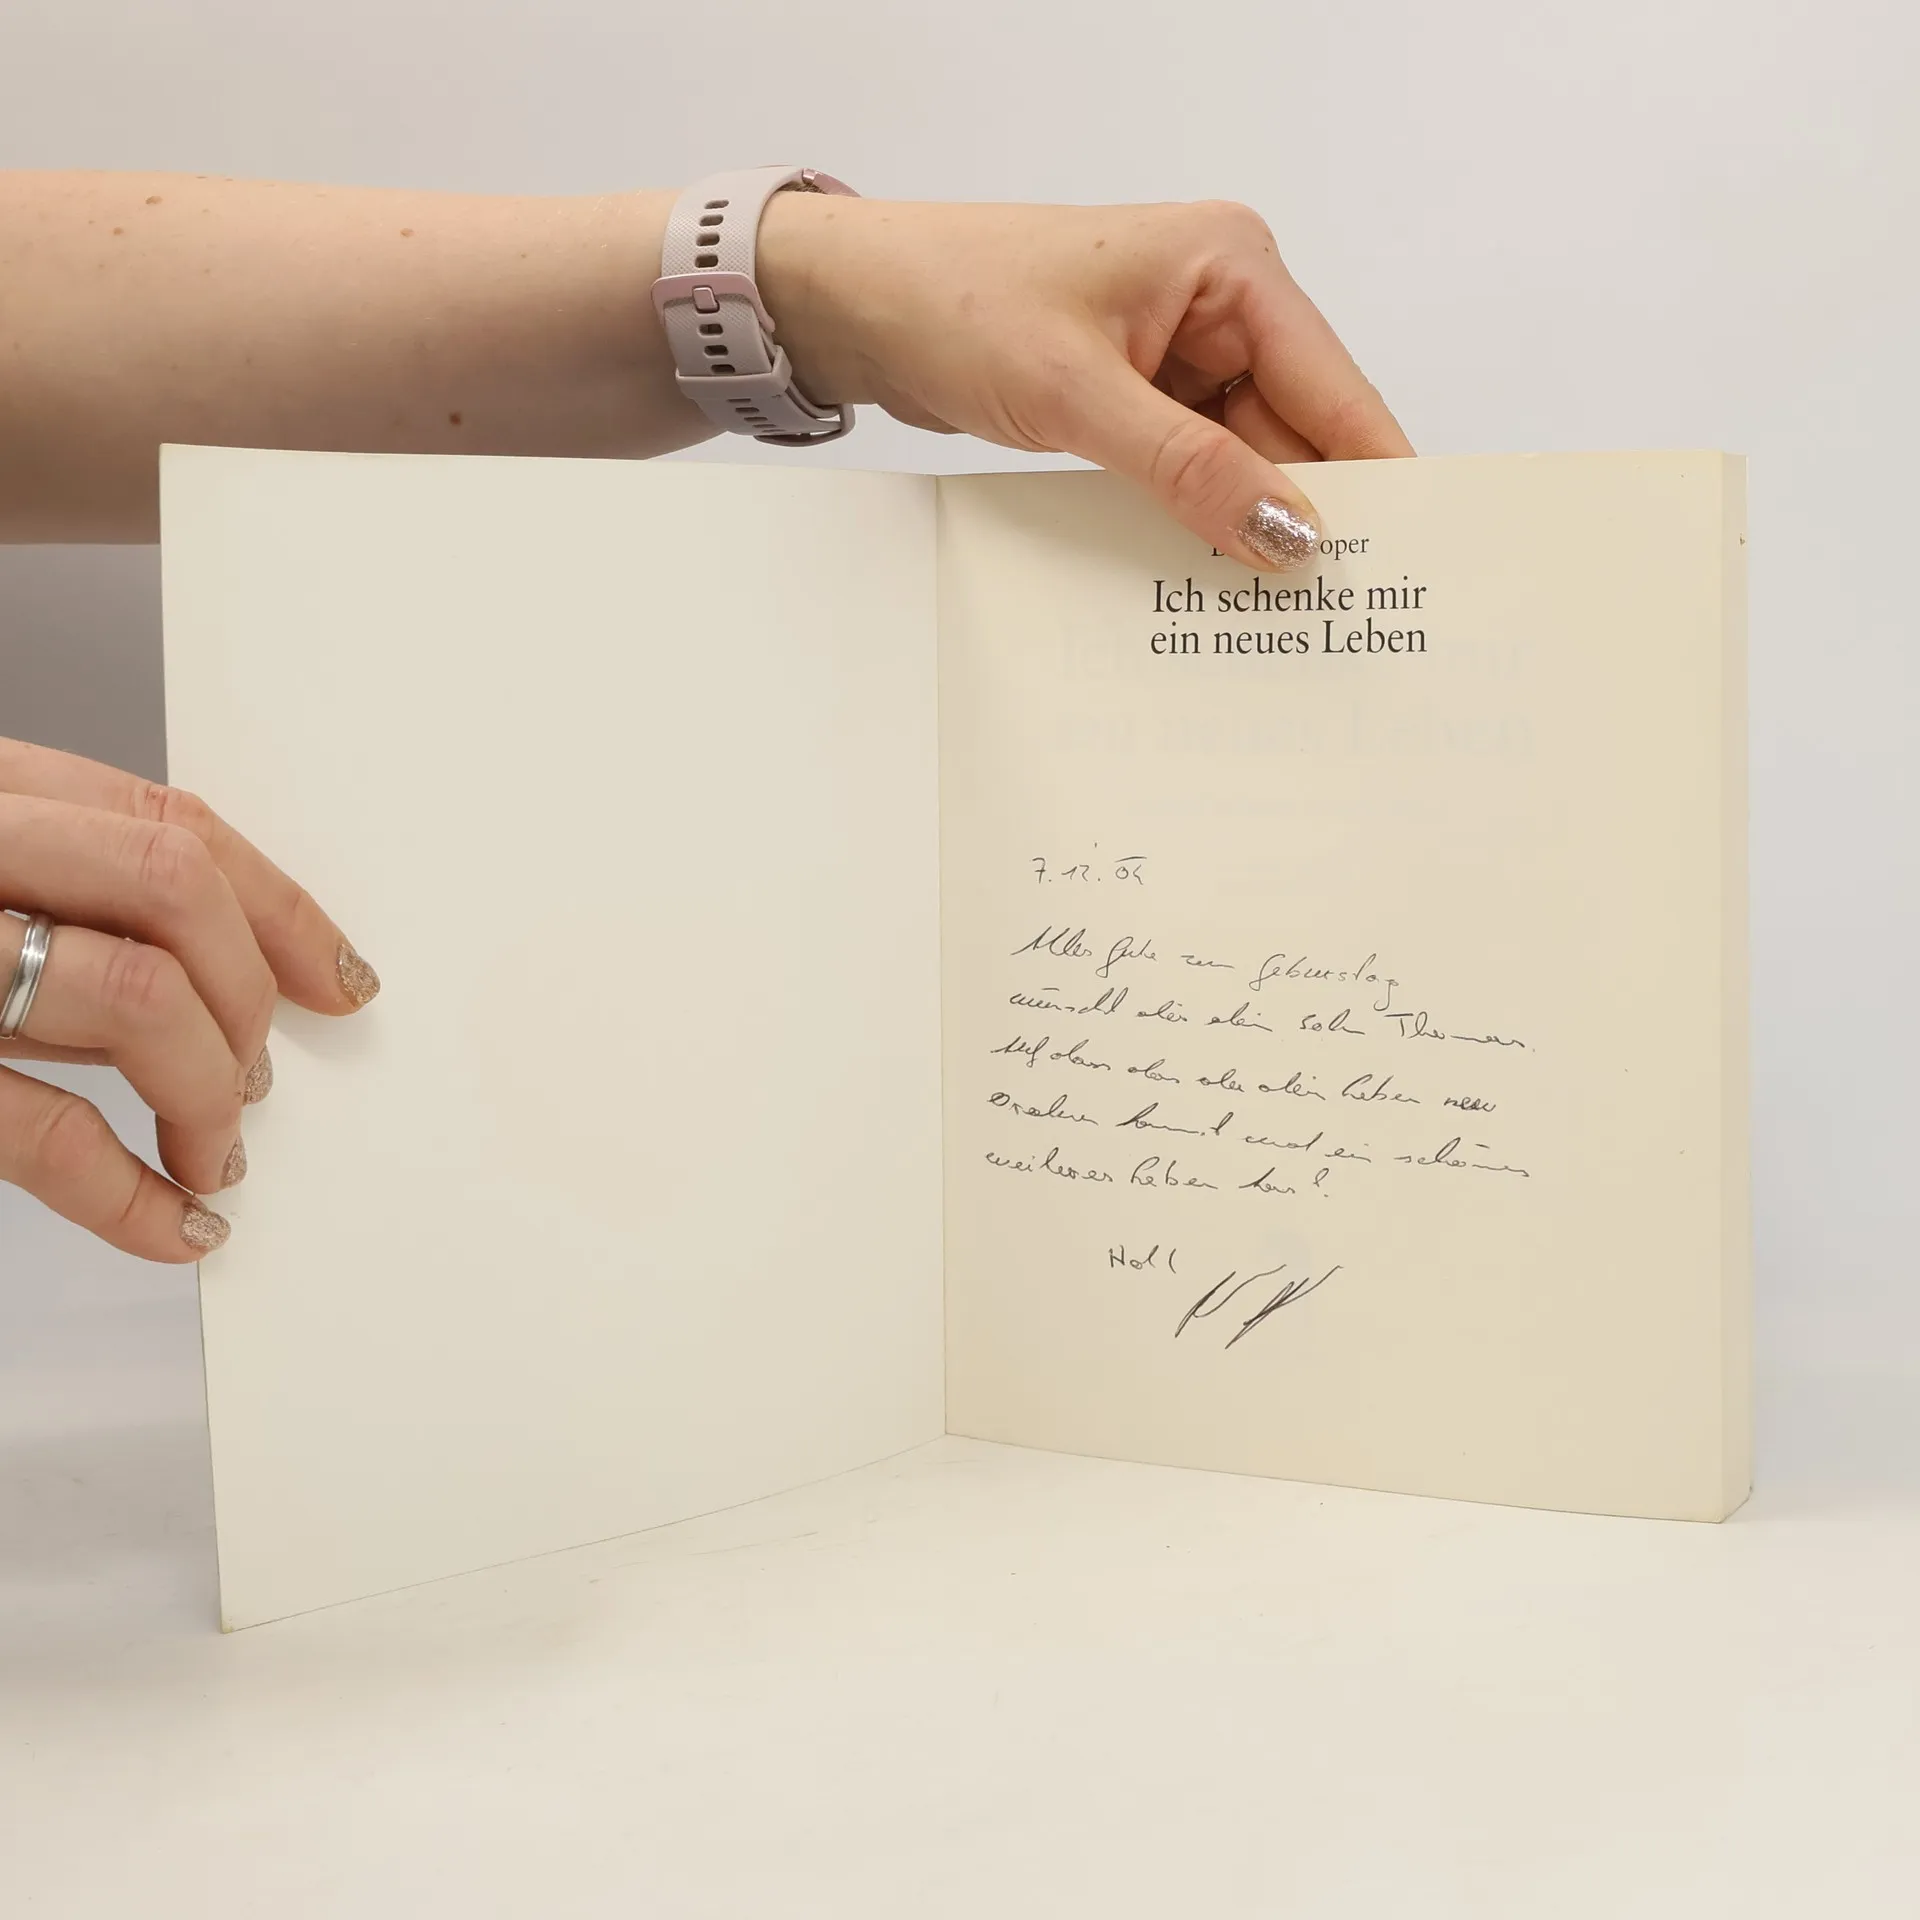 oper
Ich schenke mir
ein neues Leben
7.12.04
Alles Gute zum Geburtstag
wünscht dir dein Sohn Thomas.
Auf dass das du dein Leben neu
ordnen kannst und ein schönes
weiteres Leben hast!